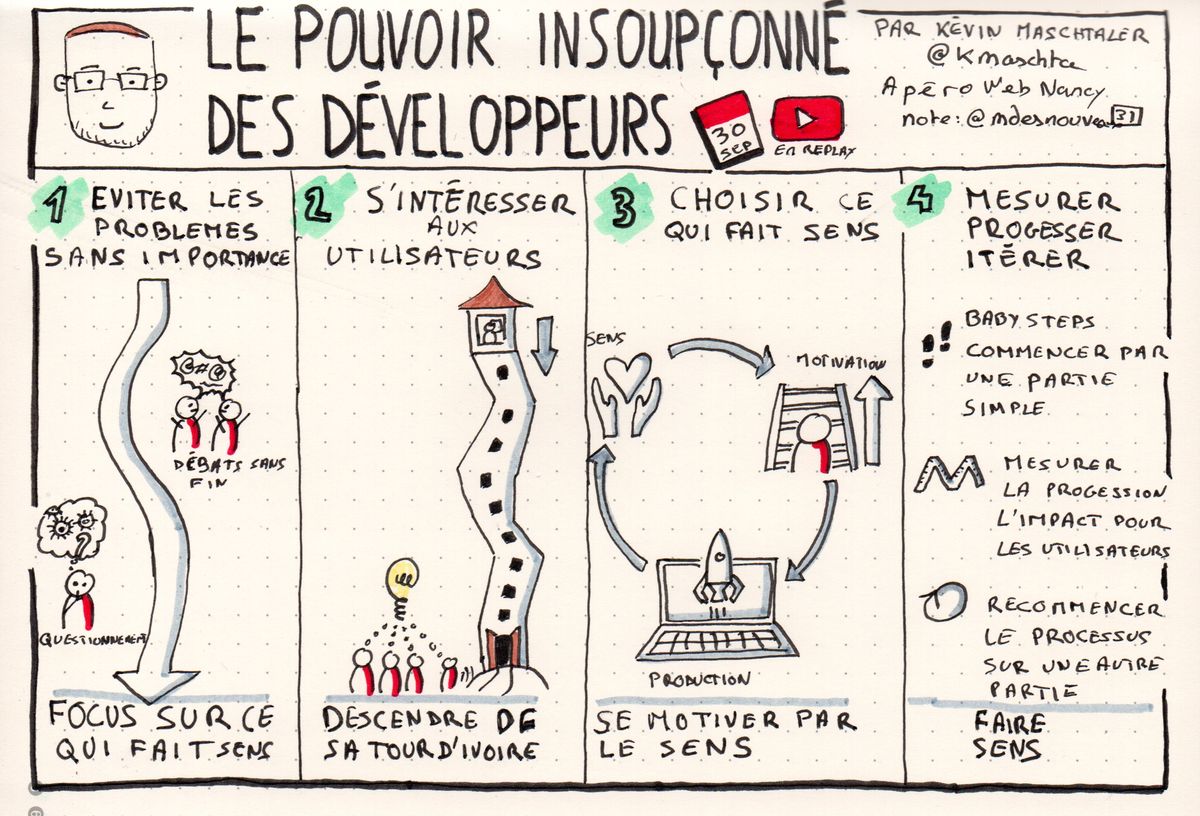 LE POUVOIR INSOUPÇONNÉ
DES DÉVELOPPEURS
30
SEP
EN REPLAY
PAR KÉVIN MASCHTALER
@Kmaschta
Apéro Web Nancy
note: @mdesnouveaux
31
1 EVITER LES
PROBLEMES
SANS IMPORTANCE
@#@
DÉBATS SANS
FIN
?
QUESTIONNEMENT
FOCUS SUR CE
QUI FAIT SENS
2 S'INTÉRESSER
AUX
UTILISATEURS
DESCENDRE DE
SA TOUR D'IVOIRE
3 CHOISIR CE
QUI FAIT SENS
SENS
MOTIVATION
PRODUCTION
SE MOTIVER PAR
LE SENS
4 MESURER
PROGESSER
ITÉRER
!!
BABY STEPS
COMMENCER PAR
UNE PARTIE
SIMPLE
MESURER
LA PROGESSION
L'IMPACT POUR
LES UTILISATEURS
RECOMMENCER
LE PROCESSUS
SUR UNE AUTRE
PARTIE
FAIRE
SENS